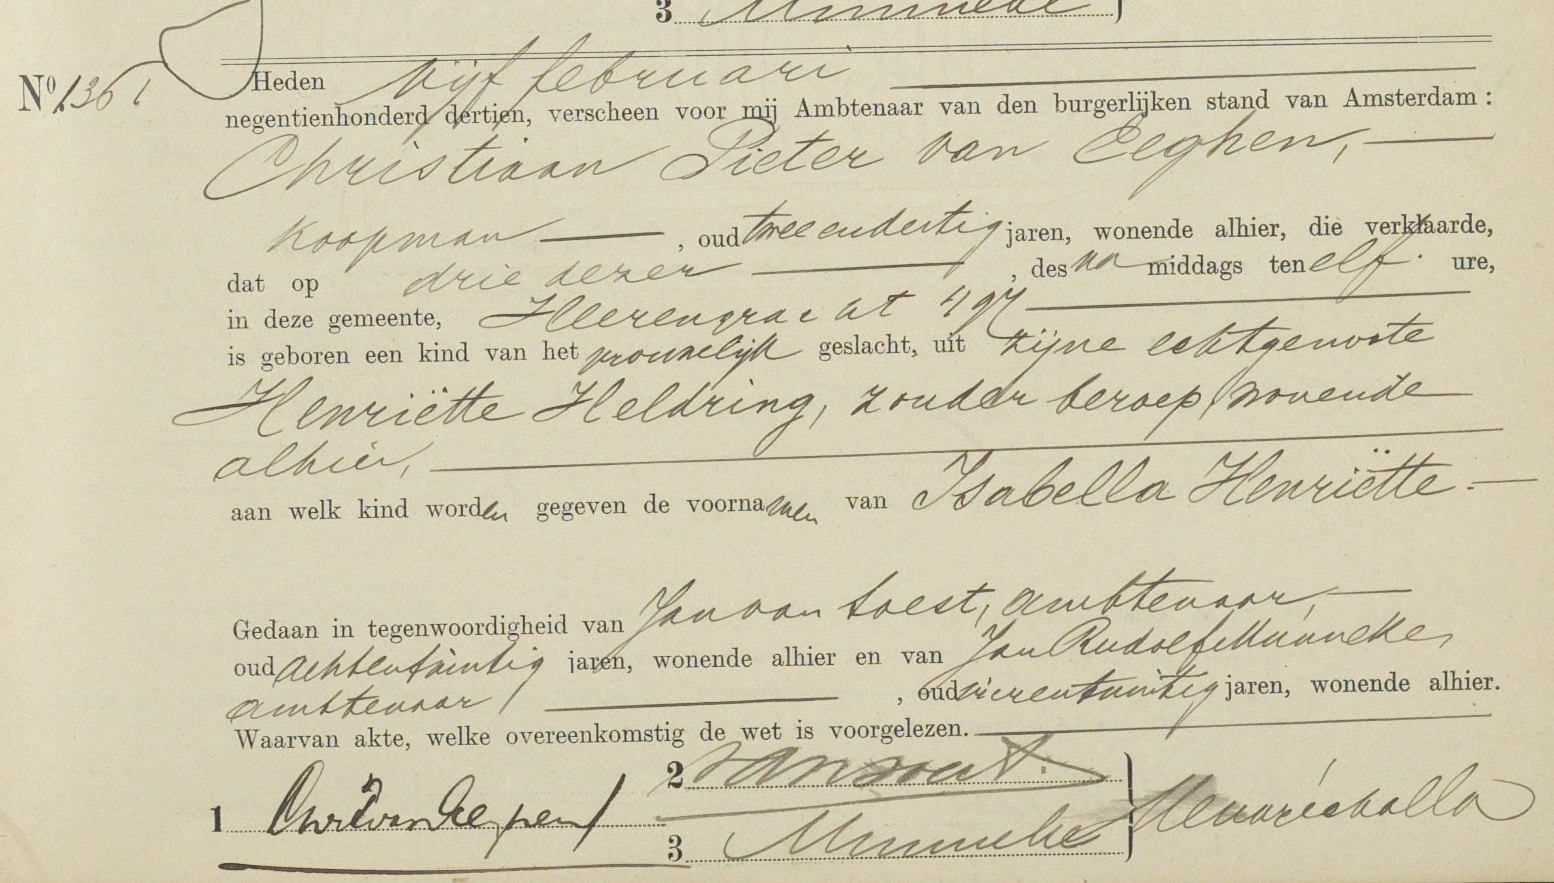 3 Munneke
No. 1361
Heden vijf februari
negentienhonderd dertien, verscheen voor mij Ambtenaar van den burgerlijken stand van Amsterdam:
Christiaan Pieter van Eeghen,
koopman, oud tweeendertig jaren, wonende alhier, die verklaarde,
dat op drie dezer, des na middags ten elf ure,
in deze gemeente, Heerengracht 497
is geboren een kind van het vrouwelijk geslacht, uit zijne echtgenoote
Henriëtte Heldring, zonder beroep, wonende
alhier,
aan welk kind worden gegeven de voornamen van Isabella Henriëtte.
Gedaan in tegenwoordigheid van Jan van Soest, ambtenaar,
oud achtentwintig jaren, wonende alhier en van Jan Rudolf Munneke,
ambtenaar, oud vierentwintig jaren, wonende alhier.
Waarvan akte, welke overeenkomstig de wet is voorgelezen.
2 van Soest.
1 Chr P van Eeghen
3 Munneke